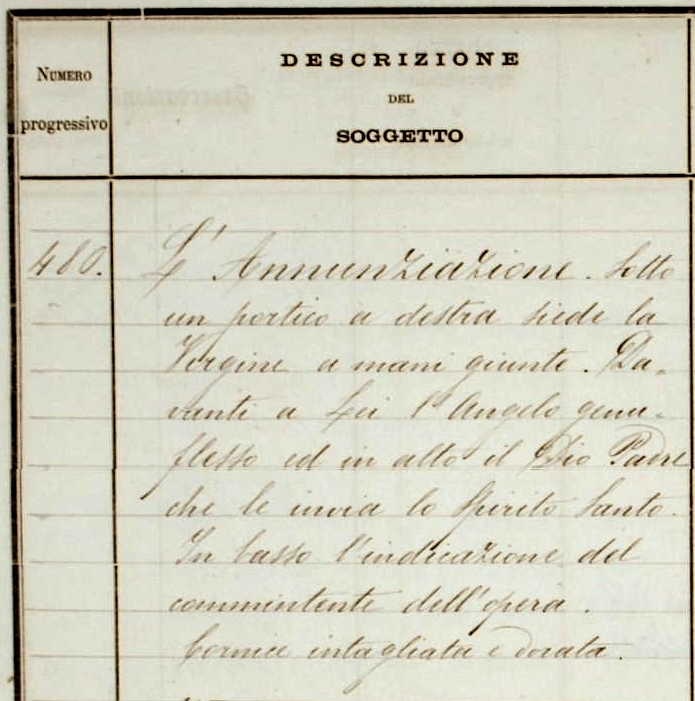 NUMERO
progressivo
DESCRIZIONE
DEL
SOGGETTO
480.
L'Annunziazione. Sotto
un portico a destra siede la
Vergine a mani giunte. Da-
vanti a Lei l'Angelo genu-
flesso ed in alto il Dio Padre
che le invia lo Spirito Santo.
In basso l'indicazione del
commintente dell'opera.
Cornice intagliata e dorata.